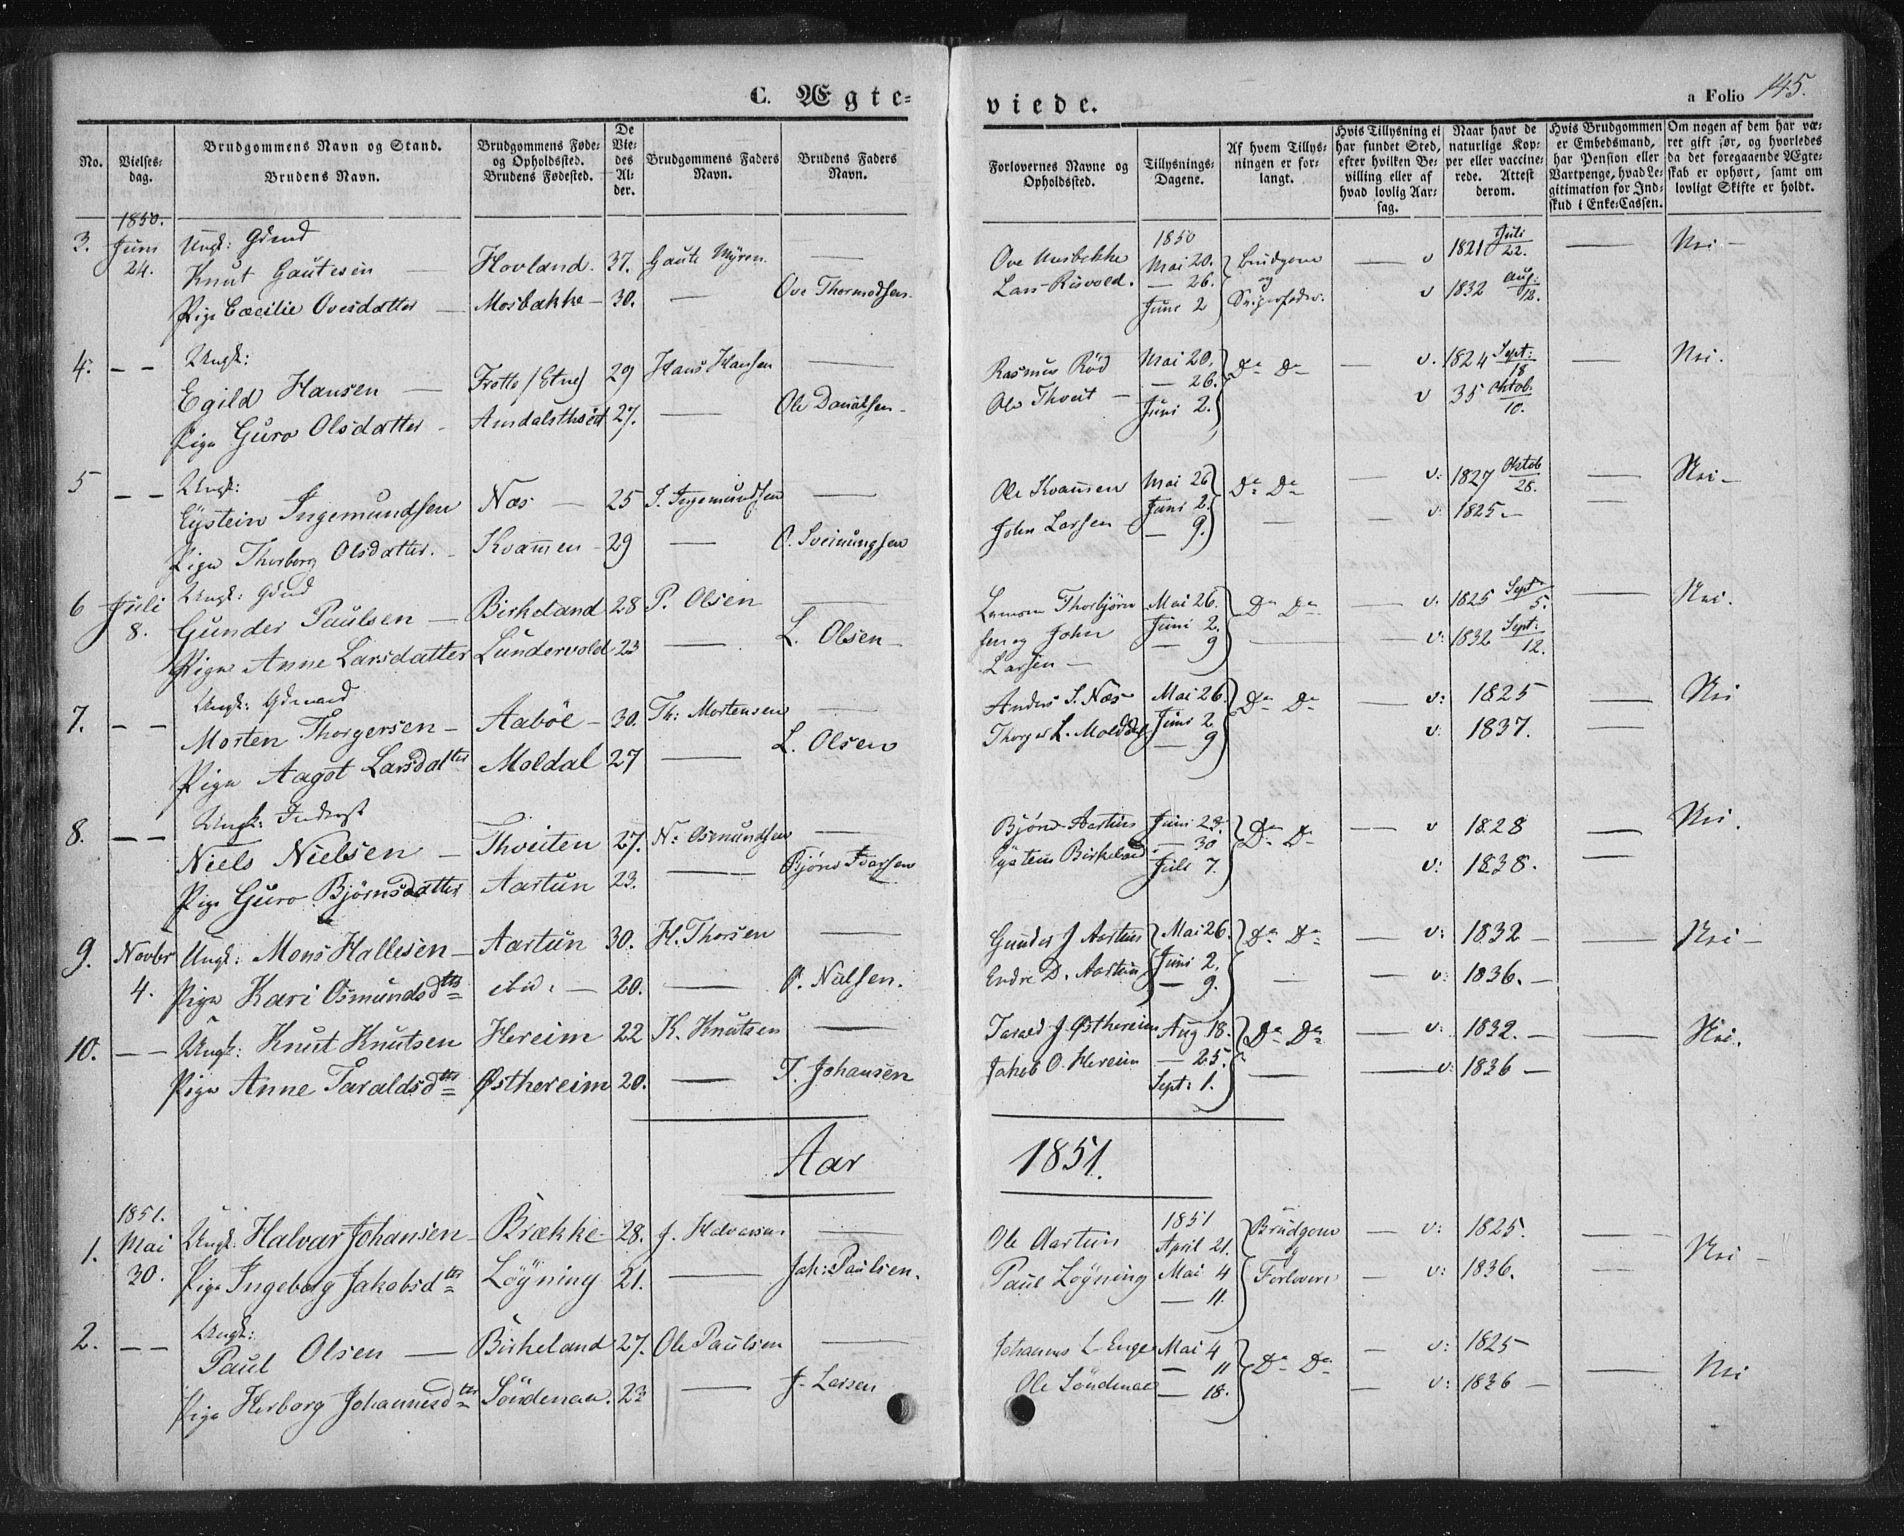 C. Ægte-
viede.
a Folio 145.
No.
Vielses-dag.
Brudgommens Navn og Stand.
Brudens Navn.
Brudgommens Føde- og Opholdssted.
Brudens Fødested.
De Viedes Alder.
Brudgommens Faders Navn.
Brudens Faders Navn.
Forlovernes Navne og Opholdssted.
Tillysnings-Dagene.
Af hvem Tillysningen er forlangt.
Hvis Tillysning ei har fundet Sted, efter hvilken Bevilling eller af hvad lovlig Aarsag.
Naar havt de naturlige Kopper eller vaccinerede. Attest derom.
Hvis Brudgommen er Embedsmand, har Pension eller Vartpenge, hvad Legitimation for Indskud i Enke-Cassen.
Om nogen af dem har været gift før, og hvorledes da det foregaaende Ægteskab er ophørt, samt om lovligt Skifte er holdt.
1850.
3. Juni 24. Ungk: Gdmd
Knut Gautesen — Hovland. 37. Gaute Myren —
Pige Cæcilie Ovesdatter — Mosbække — 30. — Ove Thormodsen
1850
Ove Mosbekke Mai 20. Brudgom v 1821 Juli 22. — Nei —
Lars Risvold. — 26. og
Juni 2 Svigerfader. v 1832 Aug: 12.
4. — — Ungk:
Egild Hansen — Frette (Etne) 29 Hans Hansen —
Pige Guro Olsdatter — 27. — Ole Danielsen
Rasmus Rød Mai 20. Do Do — v. 1824 Sept: 18 — Nei.
Ole Thveit — — 26.
Juni 2. v 35 Oktob. 10.
5 — — Ungk:
Eystein Ingemundsen Næs — 25 I. Ingemundsen —
Pige Thorborg Olsdatter. Kvammen — 29 — O. Sveinungsen
Ole Kvammen Mai 26 Do Do — v: 1827 Oktob 28. — Nei —
John Larsen Juni 2. — v: 1825 —
— 9.
6 Juli 8. Ungk: Gdmd
Gunder Paulsen — Birkeland 28 P. Olsen —
Pige Anne Larsdatter Lundervold 23 — L. Olsen —
Thorbjørn Mai 26. Do Do — v. 1825 Sept 5. — Nei.
sen og John Juni 2. — v: 1832 Sept: 12.
Larsen — — 9
7. — — Ungk: Gdmand
Morten Thorgersen — Aabøe — 30. Th: Mortensen —
Pige Aagot Larsdatter Moldal 27 — L. Olsen
Anders S. Næs Mai 26. Do Do — v: 1825 — Nei
Thorger L. Moldal Juni 2. v: 1837. —
— 9
8. — — Ungk: Inderst
Niels Nielsen — Thveiten 27. N: Osmundsen —
Pige Guro Bjørnsdatter Aartun 23. — Bjørn Ivarsen
Bjørn Aartun Juni 23. Do Do — v 1828 — Nei.
Eystein Birkeland — 30
Juli 7. v: 1838. —
9. Novbr 4. Ungk: Mons Hallesen — Aartun 30. H. Thorsen —
Pige Kari Osmundsdtr ibid: — 20. — O. Nilsen.
Gunder J Aartun Mai 26. Do Do — v: 1832 — — Nei —
Endre D. Aartun Juni 2. — v: 1836. —
— 9.
10. — — Ungk: Knut Knutsen Hereim 22 K. Knutsen —
Pige Anne Taraldsdtr Østhereim 20. — T. Johansen
Tarald J Østhereim Aug 18. Do Do — v: 1832. — — Nei.
Jakob O. Hereim — 25. — v: 1836 —
Sept: 1.
Aar 1851.
1851.
1. Mai 30. Ungk: Halvar Johansen — Brække 28. J. Halvorsen —
Pige Ingeborg Jakobsdtr Løyning 21. — Jak: Paulsen.
1851
Ole Aartun April 21. Brudgom — v: 1825. Nei —
og
Paul Løyning Mai 4 Forlovere — v: 1836.
— 11.
2. — — Ungk:
Paul Olsen — Birkeland 27. Ole Paulsen —
Pige Herborg Johannesdtr Søndenaa. 23 — J. Larsen
Johannes L Enge Mai 4 Do Do — v: 1825 — — Nei
— 11
Ole Søndenaa — 18. — v: 1836 —